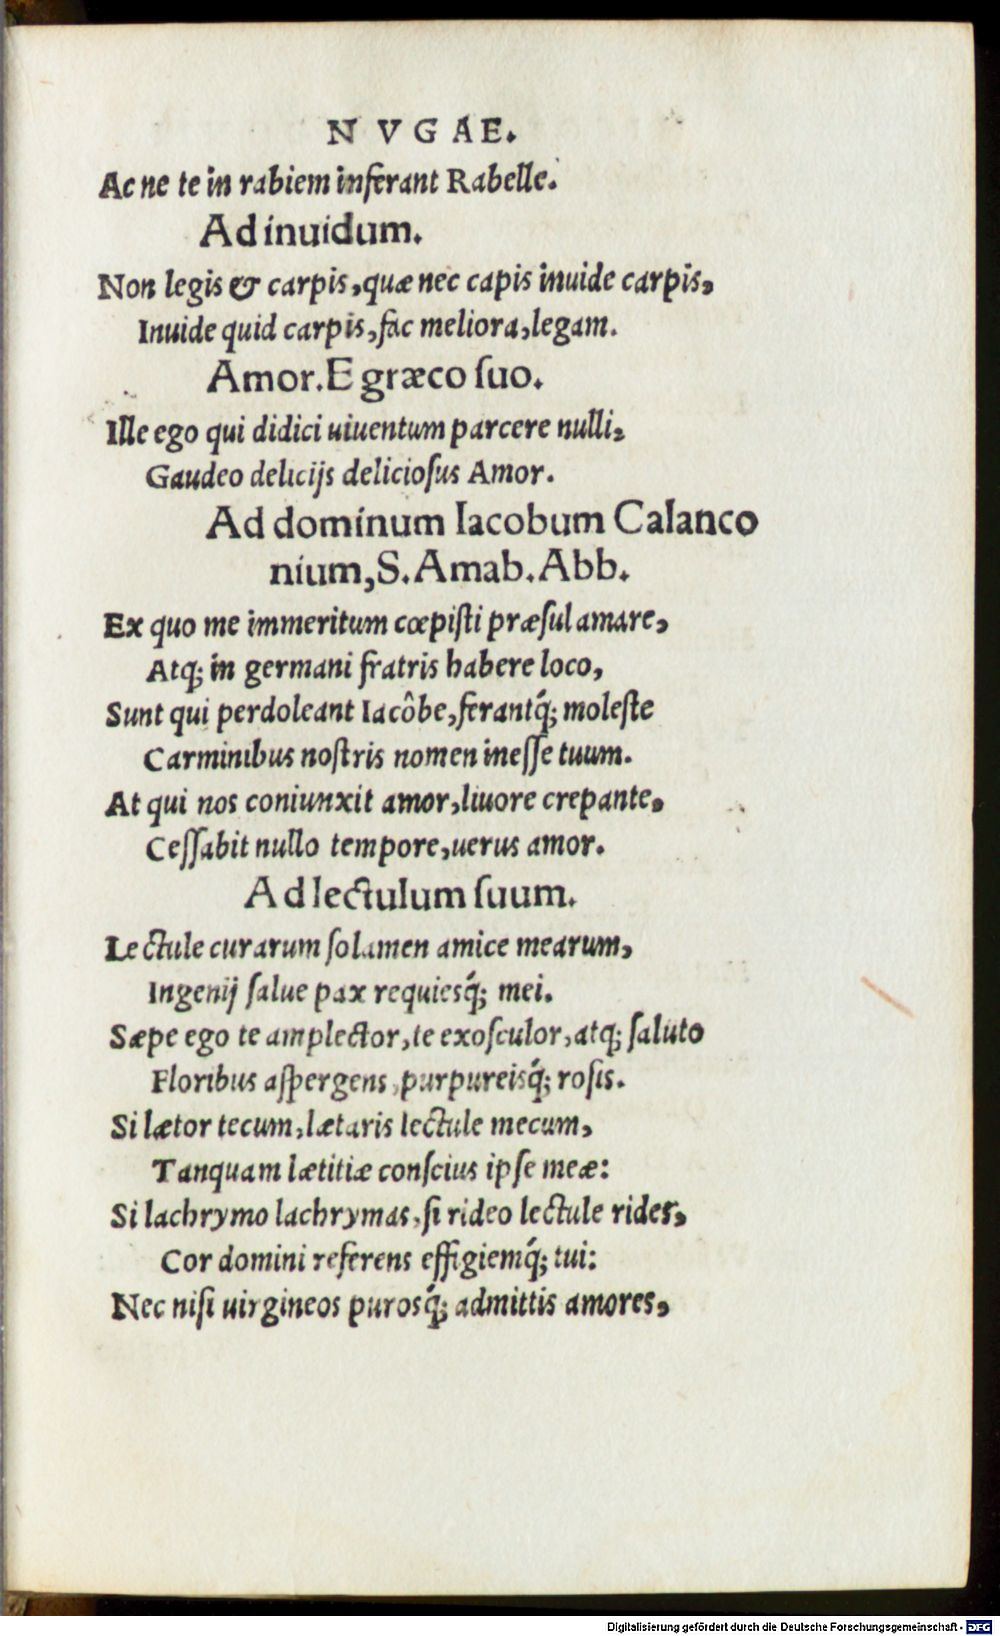 NVGAE.
Ac ne te in rabiem inferant Rabelle.
Ad inuidum.
Non legis & carpis, quæ nec capis inuide carpis,
Inuide quid carpis, fac meliora, legam.
Amor. E græco ſuo.
Ille ego qui didici uiuentum parcere nulli,
Gaudeo delicijs delicioſus Amor.
Ad dominum Iacobum Calanco
nium, S. Amab. Abb.
Ex quo me immeritum cœpiſti præſul amare,
Atq; in germani fratris habere loco,
Sunt qui perdoleant Iacôbe, ferantq́; moleſte
Carminibus noſtris nomen ineſſe tuum.
At qui nos coniunxit amor, liuore crepante,
Ceſſabit nullo tempore, uerus amor.
Ad lectulum ſuum.
Lectule curarum ſolamen amice mearum,
Ingenij ſalue pax requiesq́; mei.
Sæpe ego te amplector, te exoſculor, atq; ſaluto
Floribus aſpergens, purpureisq́; roſis.
Si lætor tecum, lætaris lectule mecum,
Tanquam lætitiæ conſcius ipſe meæ:
Si lachrymo lachrymas, ſi rideo lectule rides,
Cor domini referens effigiemq́; tui:
Nec niſi uirgineos purosq́; admittis amores,
Digitalisierung gefördert durch die Deutsche Forschungsgemeinschaft - DFG